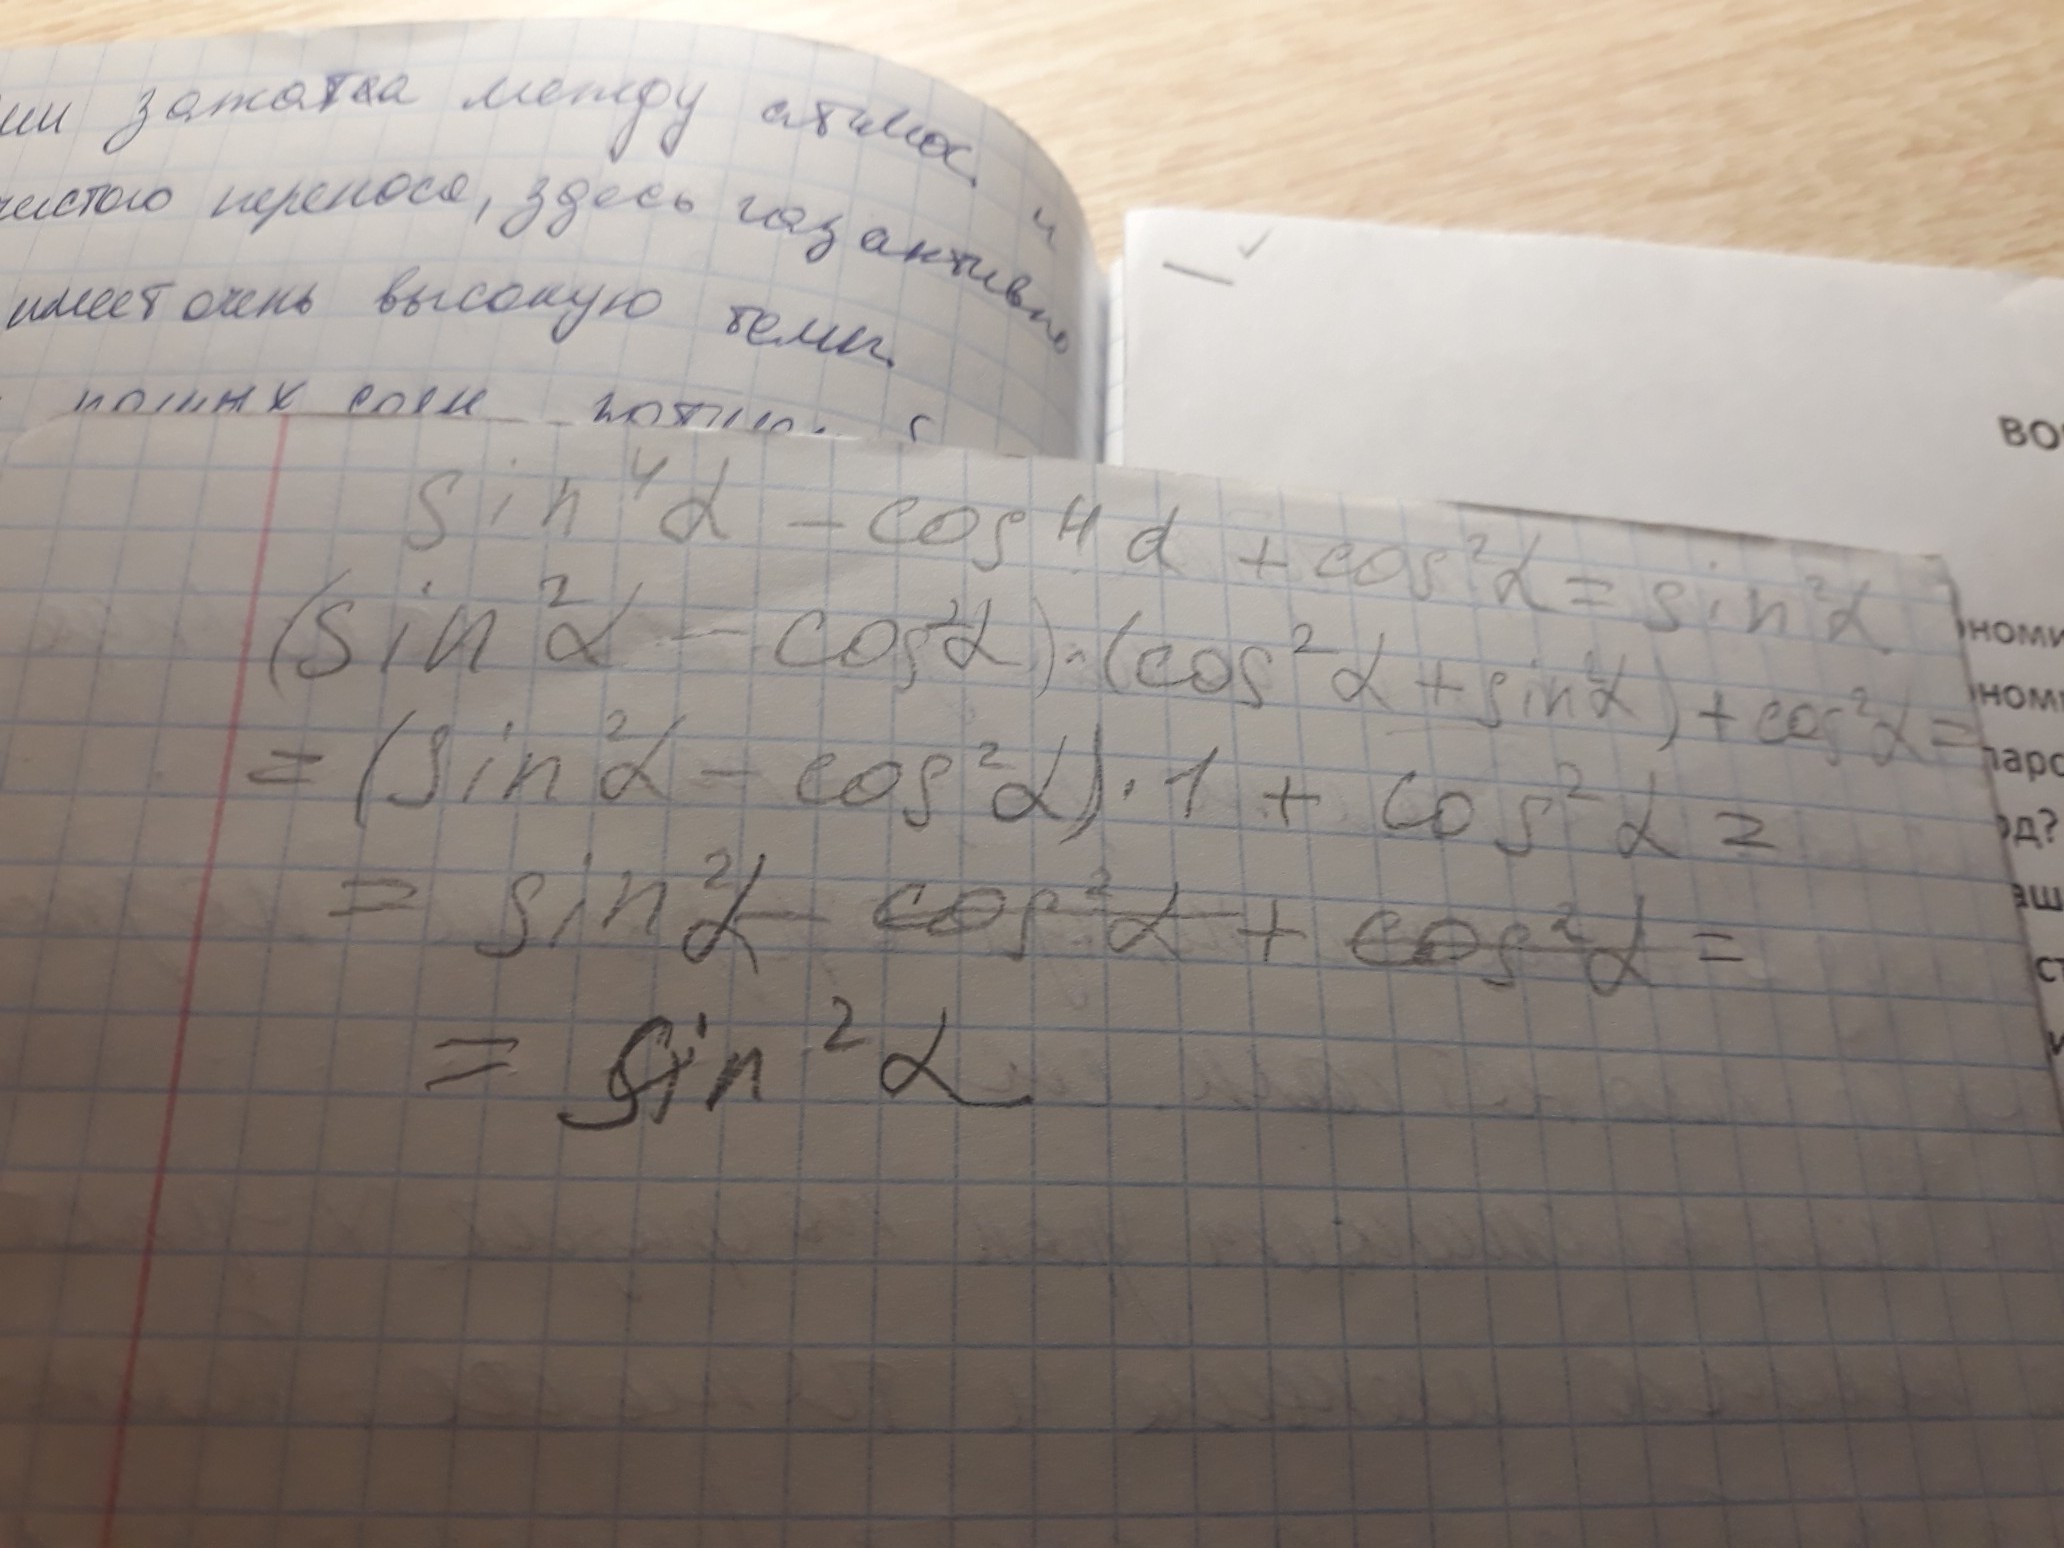 зажатка между атмос. и
чистого переноса, здесь газ активно
имеет очень высокую темп.
sin⁴α - cos⁴α + cos²α = sin²α
(sin²α - cos²α)·(cos²α + sin²α) + cos²α =
= (sin²α - cos²α)·1 + cos²α =
= sin²α - cos²α + cos²α =
= sin²α